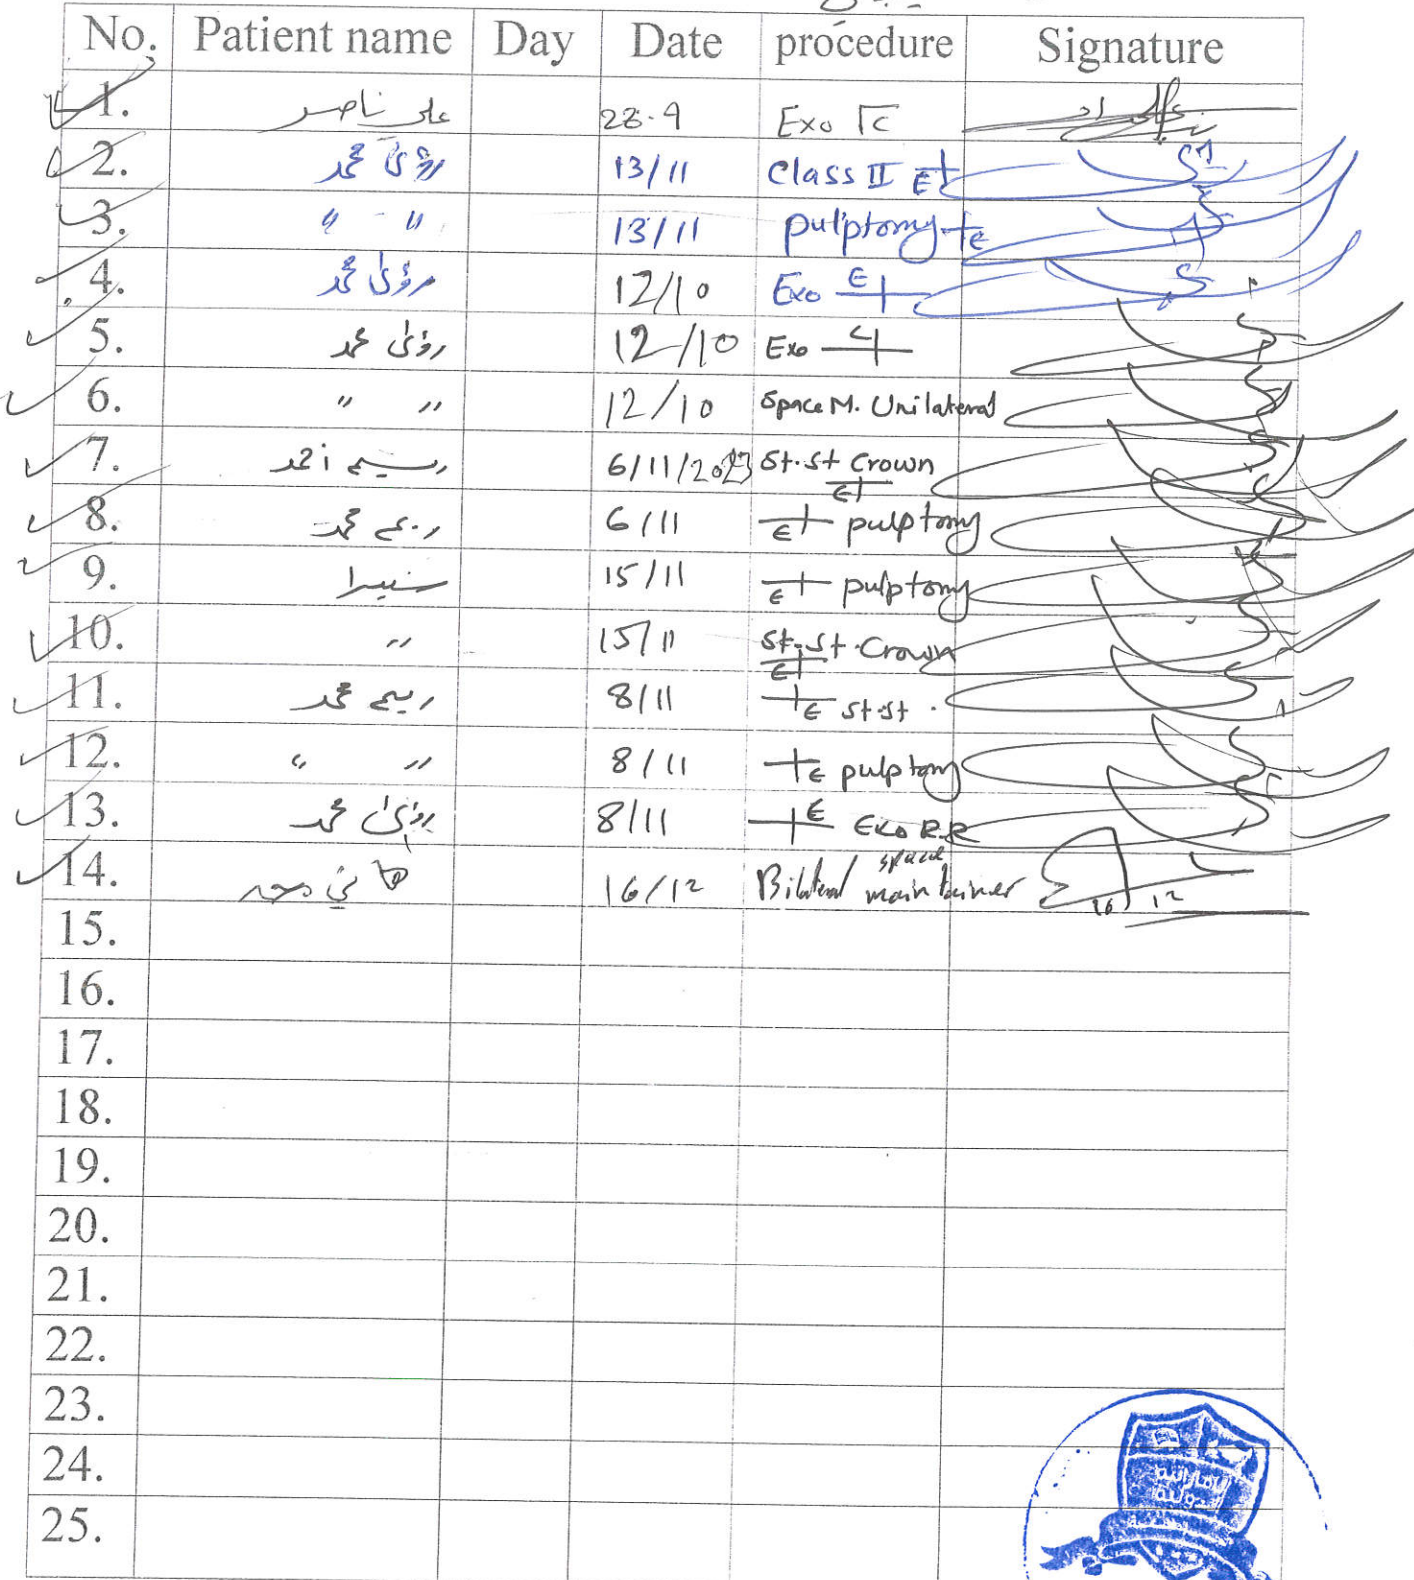 No. Patient name Day Date procedure Signature
1. علي ناصر 28.9 Exo Γc
2. رؤى محمد 13/11 Class II E
3. " " 13/11 pulptomy E
4. رؤى محمد 12/10 Exo E
5. رؤى محمد 12/10 Exo
6. " " 12/10 Space M. Unilateral
7. احمد 6/11/2023 St.St Crown E
8. محمد 6/11 E pulptomy
9. 15/11 E pulptomy
10. " 15/11 St.St.Crown E
11. محمد 8/11 E St.St.
12. " " 8/11 E pulptomy
13. رؤى محمد 8/11 E Exo R.R
14. هاني 16/12 Bilateral space maintainer 16/12
15.
16.
17.
18.
19.
20.
21.
22.
23.
24.
25.
الاماراتية
الدولية